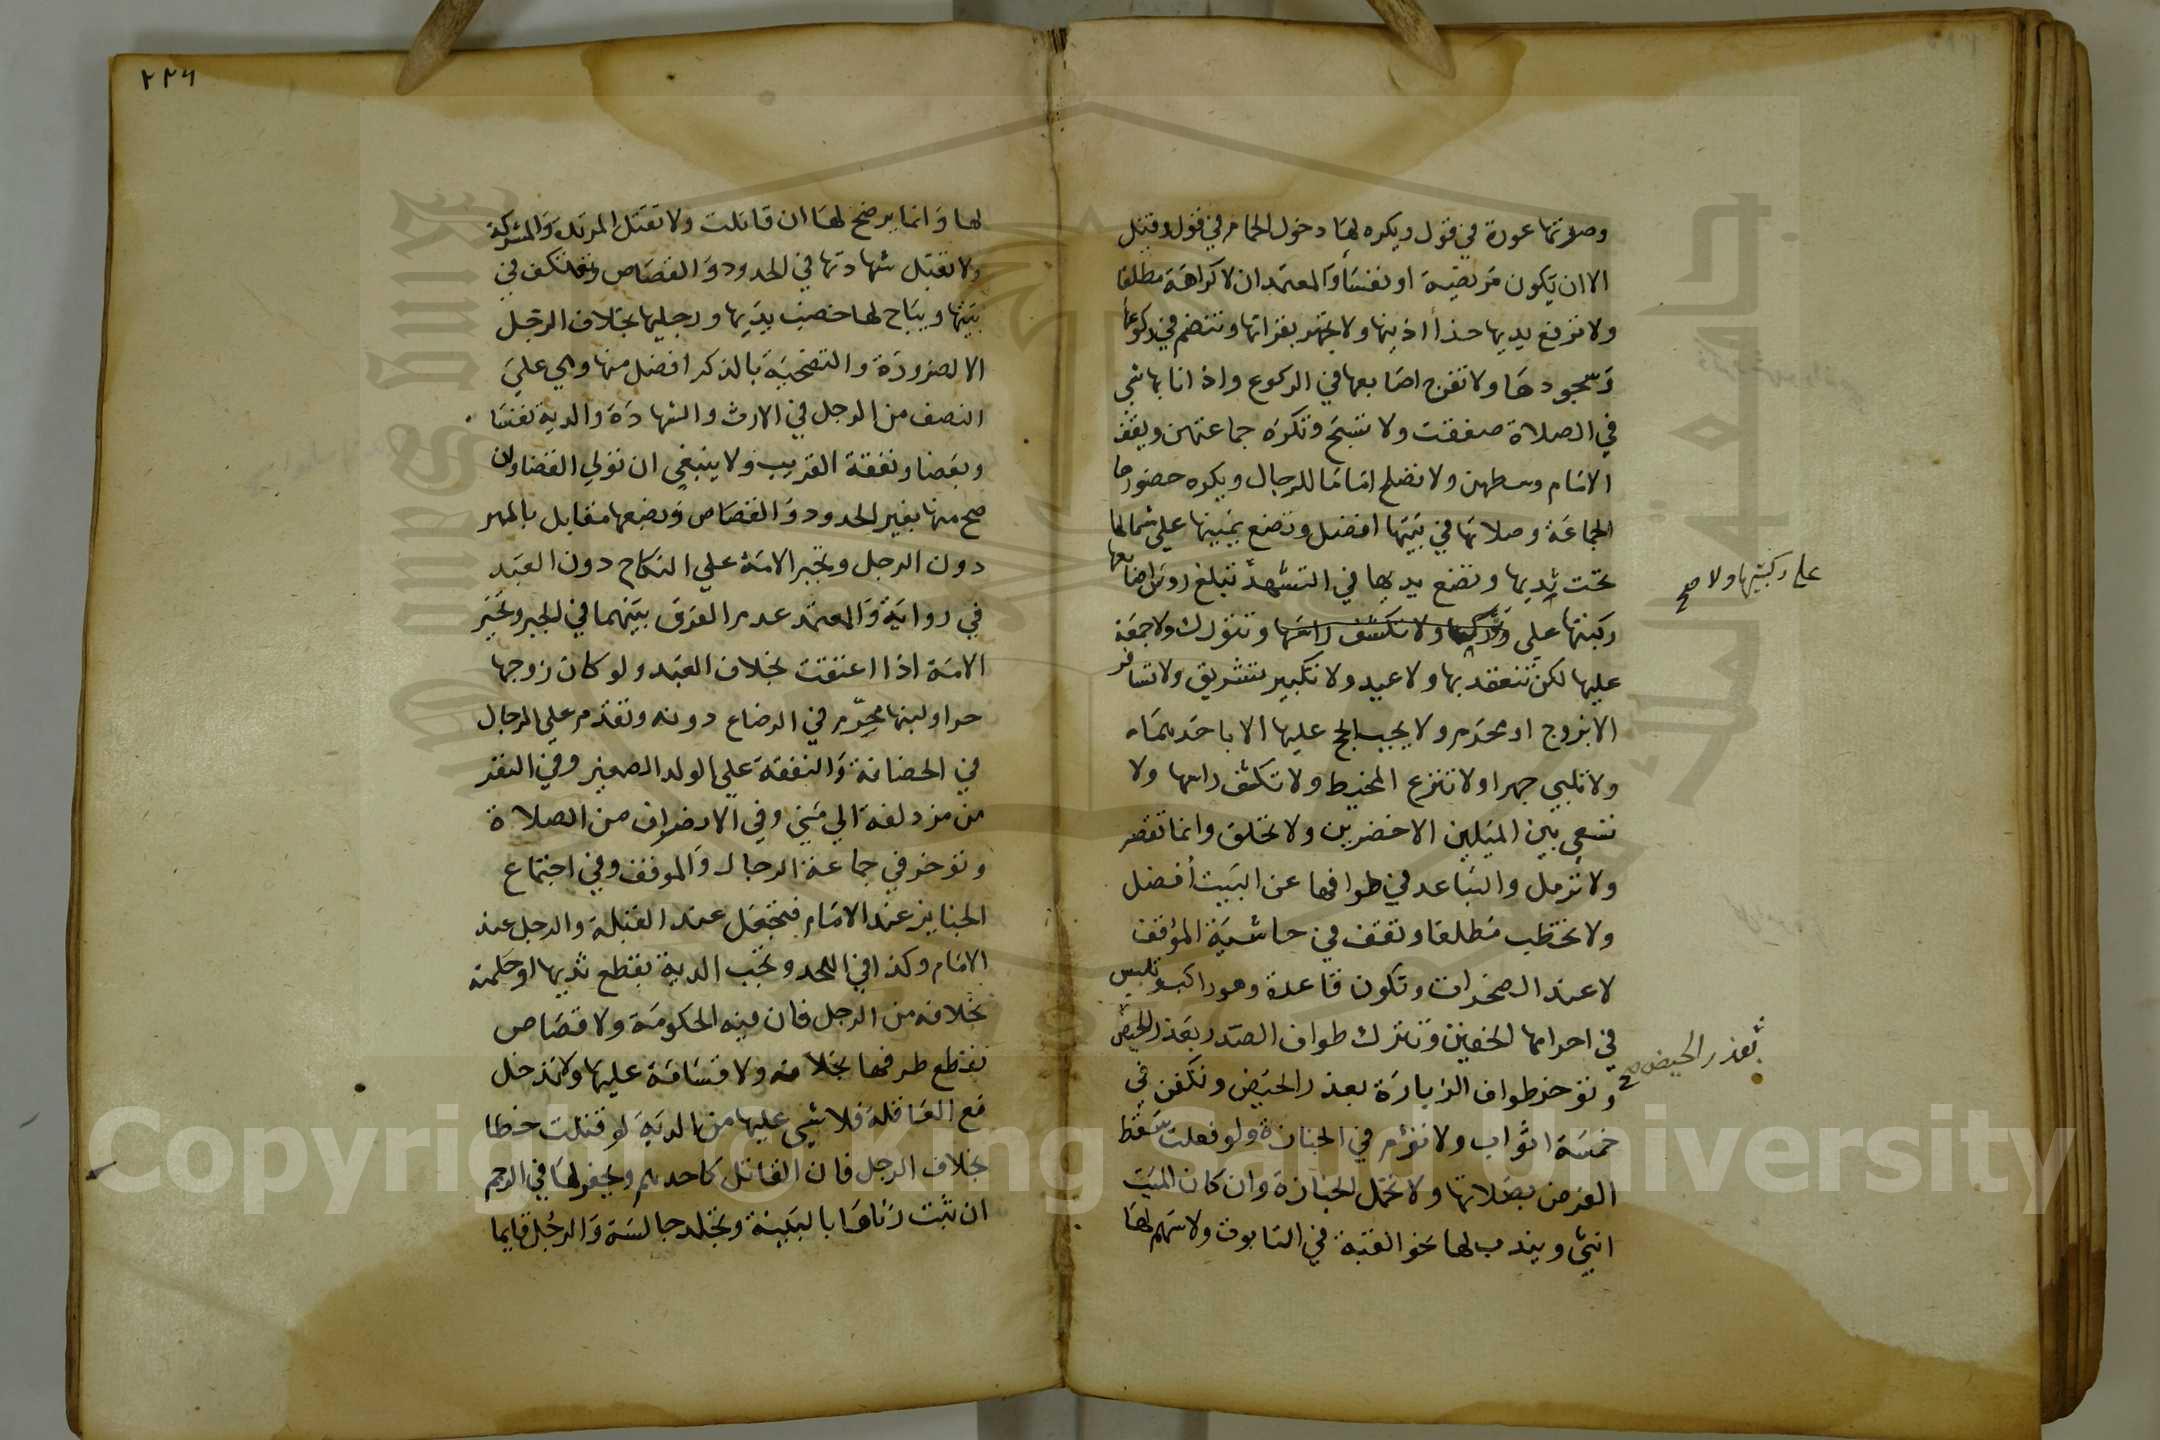 وصوتها عورة في قول ويكره لها دخول الحمام في قول وقيل
الا ان يكون مريضة او نفسأ والمعتمد ان لا كراهة مطلقا
ولا ترفع يديها حذأ اذنيها ولا تجهر بقراتها وتنضم في ركوعها
وسجودها ولا تفرج اصابعها في الركوع واذا نابها شي
في الصلاة صفقت ولا تسبح وتكره جماعتهن ويقف
الامام وسطهن ولا تصلح اماما للرجال ويكره حضورها
الجماعة وصلاتها في بيتها افضل وتضع يمينها علي شمالها
تحت ثديها وتضع يديها في التشهد تبلغ روس اصابعها
ركبتها علي ولا تكشف راسها وتتورك ولا جمعة
على ركبتيها ولا صح
عليها لكن تنعقد بها ولا عيد ولا تكبير تشريق ولا تسافر
الا بزوج او محرم ولا يجب الحج عليها الا باحدهما
ولا تلبي جهرا ولا تنزع المخيط ولا تكشف راسها ولا
تسعي بين الميلين الاخضرين ولا تحلق وانما تقصر
ولا ترمل والتباعد في طوافها عن البيت أفضل
ولا تخطب مطلقا وتقف في حاشية الموقف
لا عند الصخرات وتكون قاعدة وهو راكب وتلبس
في احرامها الخفين وتترك طواف الصدر بعذر الحيض
وتوخر طواف الزيارة بعذر الحيض وتكفن في
بعذر الحيض صح
خمسة اثواب ولا تؤم في الجنازة ولو فعلت سقط
الفرض بصلاتها ولا تحمل الجنازة وان كان الميت
انثي ويندب لها نحو القبة في التابوت ولا سهم لها
٢٢٦
لها وانما يرضخ لها ان قاتلت ولا تقتل المرتدة والمشركة
ولا تقبل شهادتها في الحدود والقصاص وتعتكف في
بيتها ويباح لها خضب يديها ورجليها بخلاف الرجل
الا لضرورة والتضحية بالذكر افضل منها وهي علي
النصف من الرجل في الارث والشهادة والدية نفسا
وبعضا ونفقة القريب ولا ينبغي ان تولي القضا وان
صح منها بغير الحدود والقصاص وبضعها مقابل بالمهر
دون الرجل وتجبر الامة علي النكاح دون العبد
في رواية والمعتمد عدم الفرق بينهما في الجبر وتخير
الامة اذا اعتقت بخلاف العبد ولو كان زوجها
حرا ولبنها محرم في الرضاع دونه وتقدم علي الرجال
في الحضانة والنفقة علي الولد الصغير وفي النفر
من مزدلفة الي مني وفي الانصراف من الصلاة
وتوخر في جماعة الرجال والموقف وفي اجتماع
الجنايز عند الامام فتجعل عند القبلة والرجل عند
الامام وكذا في اللحد وتجب الدية بقطع ثديها او حلمته
بخلافه من الرجل فان فيه الحكومة ولا قصاص
بقطع طرفها بخلافه ولا قسامة عليها ولا تدخل
مع العاقلة فلا شي عليها من الدية لو قتلت خطا
بخلاف الرجل فان القاتل كاحدهم ويحفر لها في الرجم
ان ثبت زناها بالبينة وتجلد جالسة والرجل قايما
Copyright © King Saud University